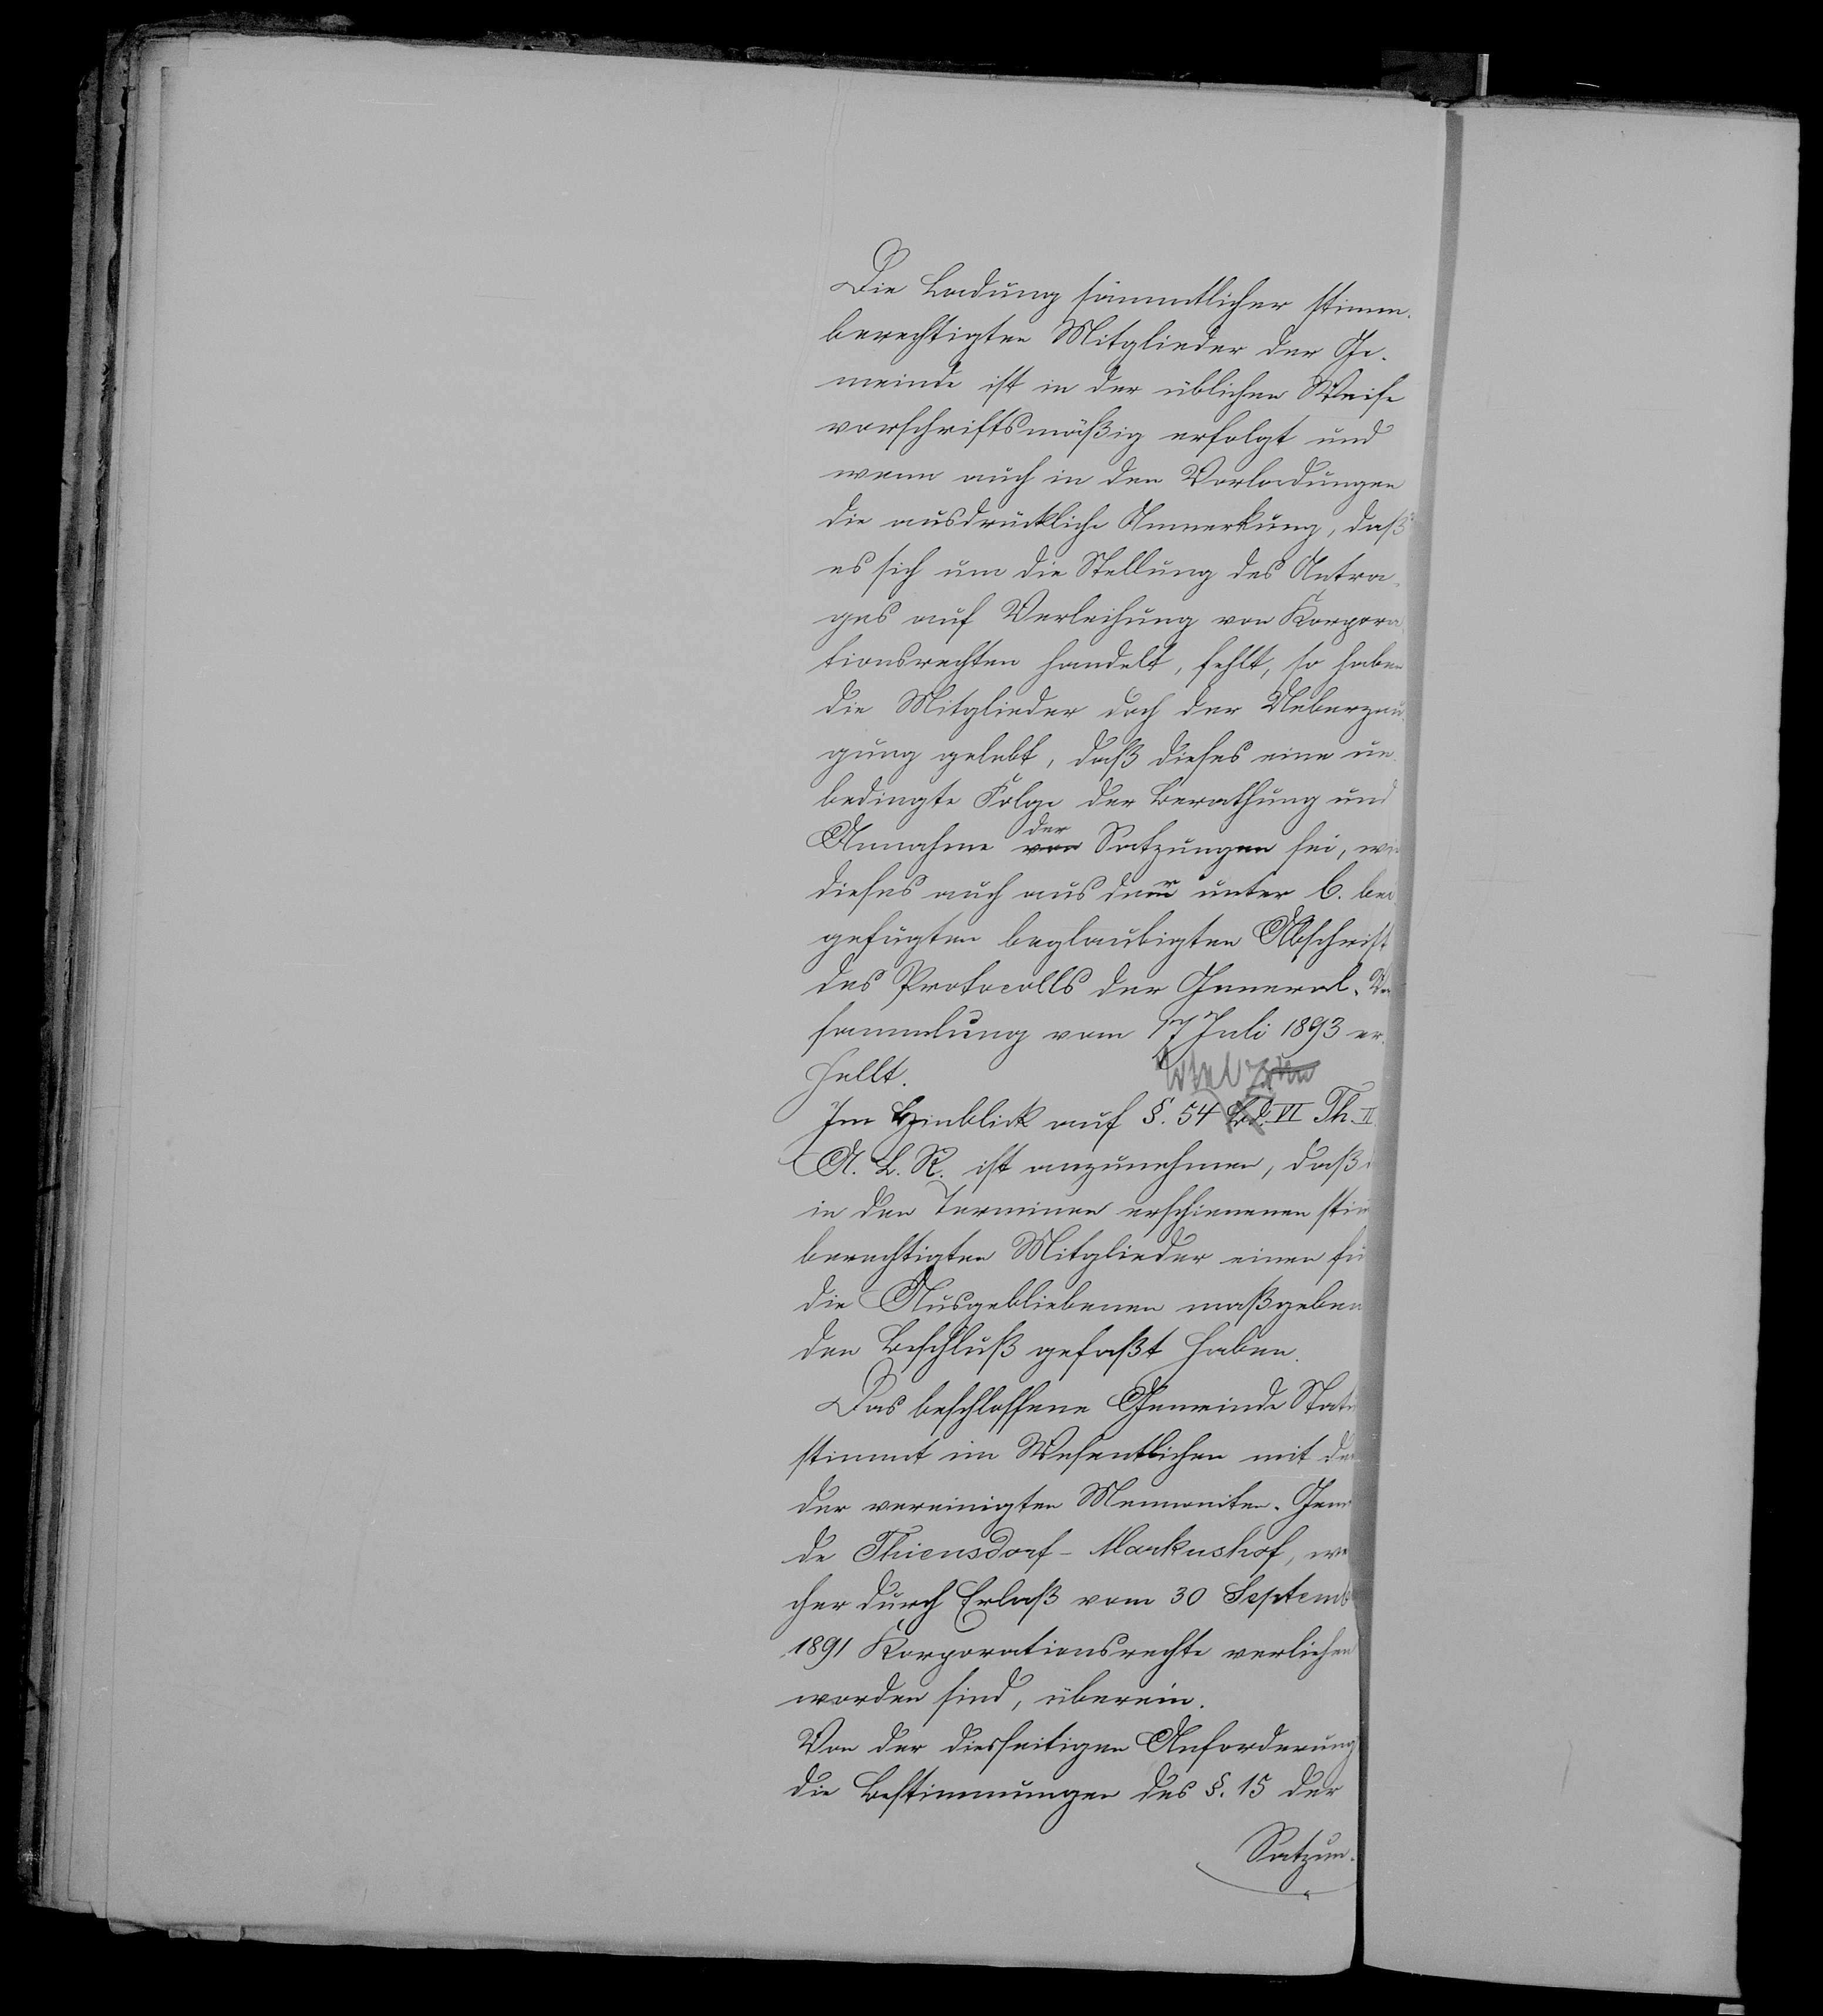 Die Ladung sämmtlicher stimm-
berechtigten Mitglieder der Ge-
meinde ist in der üblichen Weise
vorschriftsmäßig erfolgt und
wenn auch in den Vorladungen
die ausdrückliche Anmerkung, daß
es sich um die Stellung des Antra-
ges auf Verleihung von Korpora-
tionsrechten handelt, fehlt, so haben
die Mitglieder doch der Ueberzeu-
gung gelebt, daß dieses eine un-
bedingte Folge der Berathung und
der
Annahme von Satzungen sei, wie
dieses auch aus der unter C. bei-
gefügten beglaubigten Abschrift
des Protocolls der General-Ver
sammlung vom 17 Juli 1893 er-
hellt.
Im Hinblick auf §. 54 Bd. VI Th. II
A. L. R. ist anzunehmen, daß
in den Terminen erschienenen stim
berechtigten Mitglieder einen fü
die Ausgebliebenen maßgeben
den Beschluß gefaßt haben.
Das beschlossene Gemeinde Statu
stimmt im Wesentlichen mit dem
der vereinigten Mennoniten-Gem
de Thiensdorf-Markushof, we
cher durch Erlaß vom 30 Septemb
1891 Korporationsrechte verliehen
worden sind, überein.
Von der diesseitigen Anforderung
die Bestimmungen des §. 15 der
Satzun-